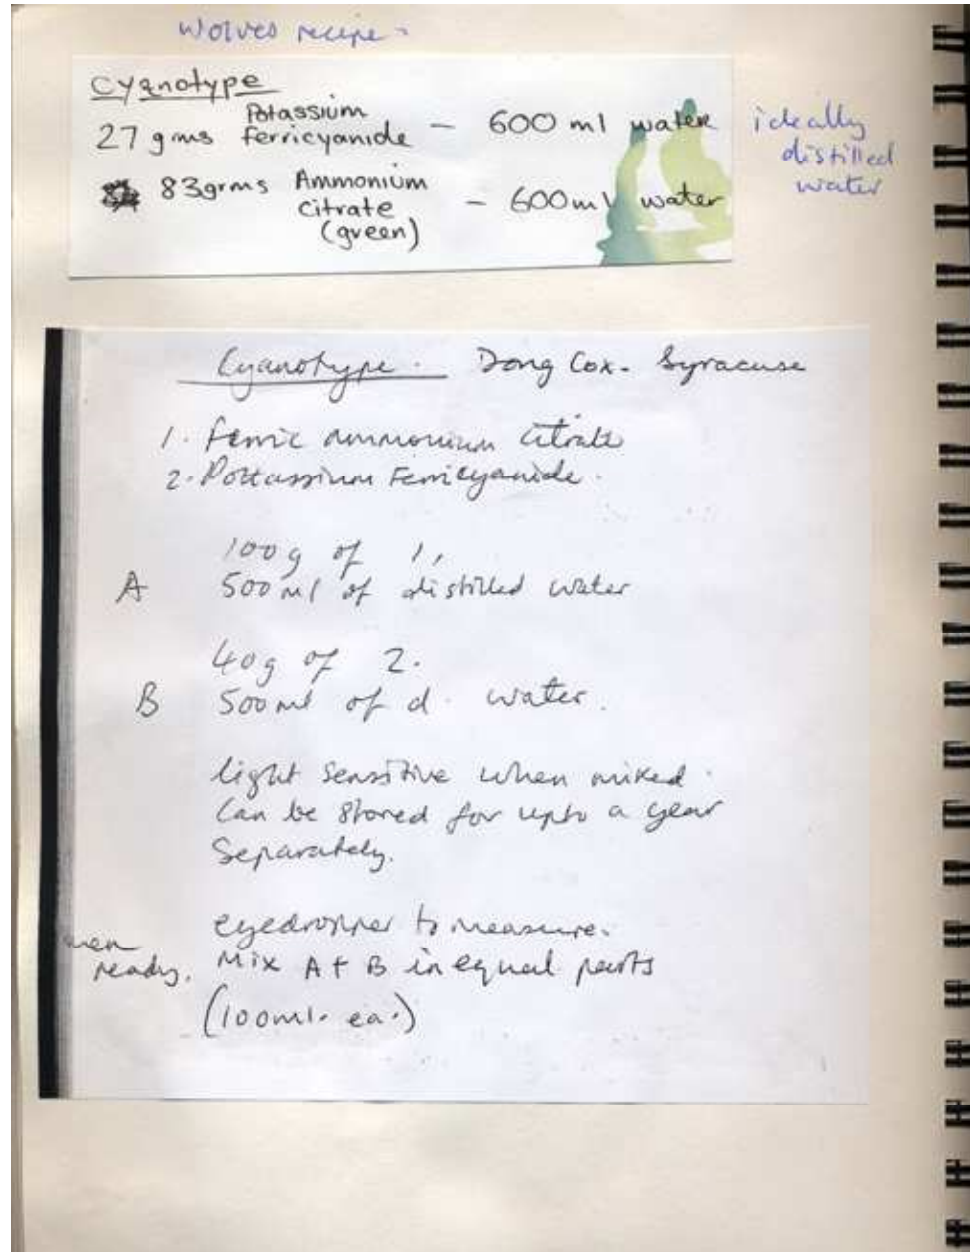 Wolves recipe -
Cyanotype
27 gms Potassium ferricyanide - 600 ml water
ideally distilled water
83grms Ammonium citrate (green) - 600ml water
Cyanotype. Doug Cox. Syracuse
1. Ferric ammonium citrate
2. Pottassium Ferricyanide.
100g of 1,
A 500 ml of distilled water
40g of 2.
B 500 ml of d. water.
light sensitive when mixed.
Can be stored for upto a year
Separately.
eyedropper to measure.
when ready. Mix A + B in equal parts
(100ml. ea.)